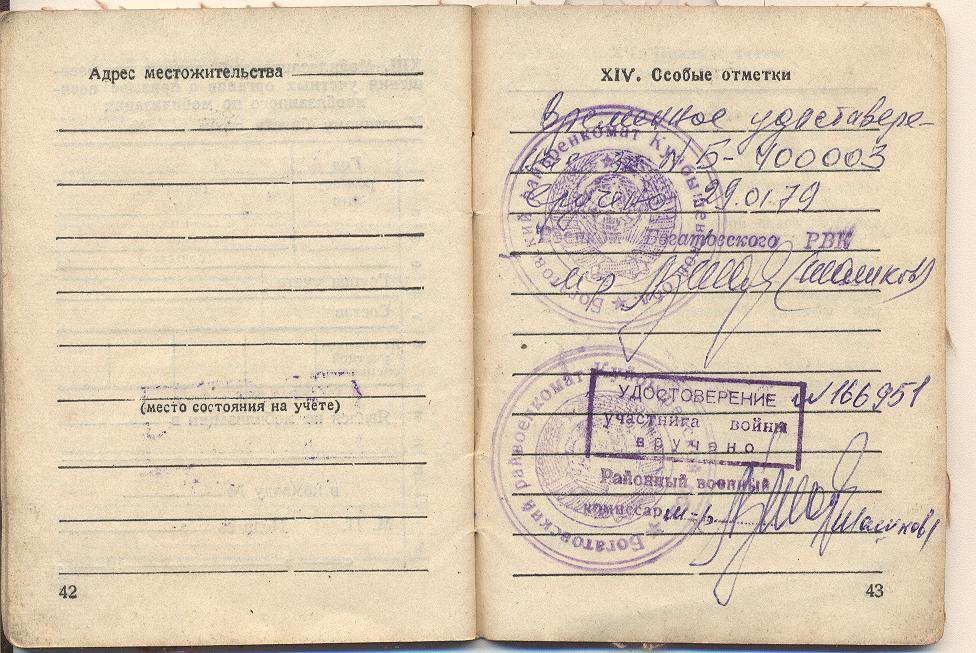 Адрес местожительства
(место состояния на учёте)
42
XIV. Особые отметки
Временное удоставере-
ние № Б-400003
Вручено 29.01.79
Военком Богатовского РВК
м-р (Машков)
Богатовский райвоенкомат Куйбышевской обл.
УДОСТОВЕРЕНИЕ №166951
участника войны
вручено
Районный военный
комиссар м-р (Машков)
Богатовский райвоенкомат Куйбышевской обл.
43